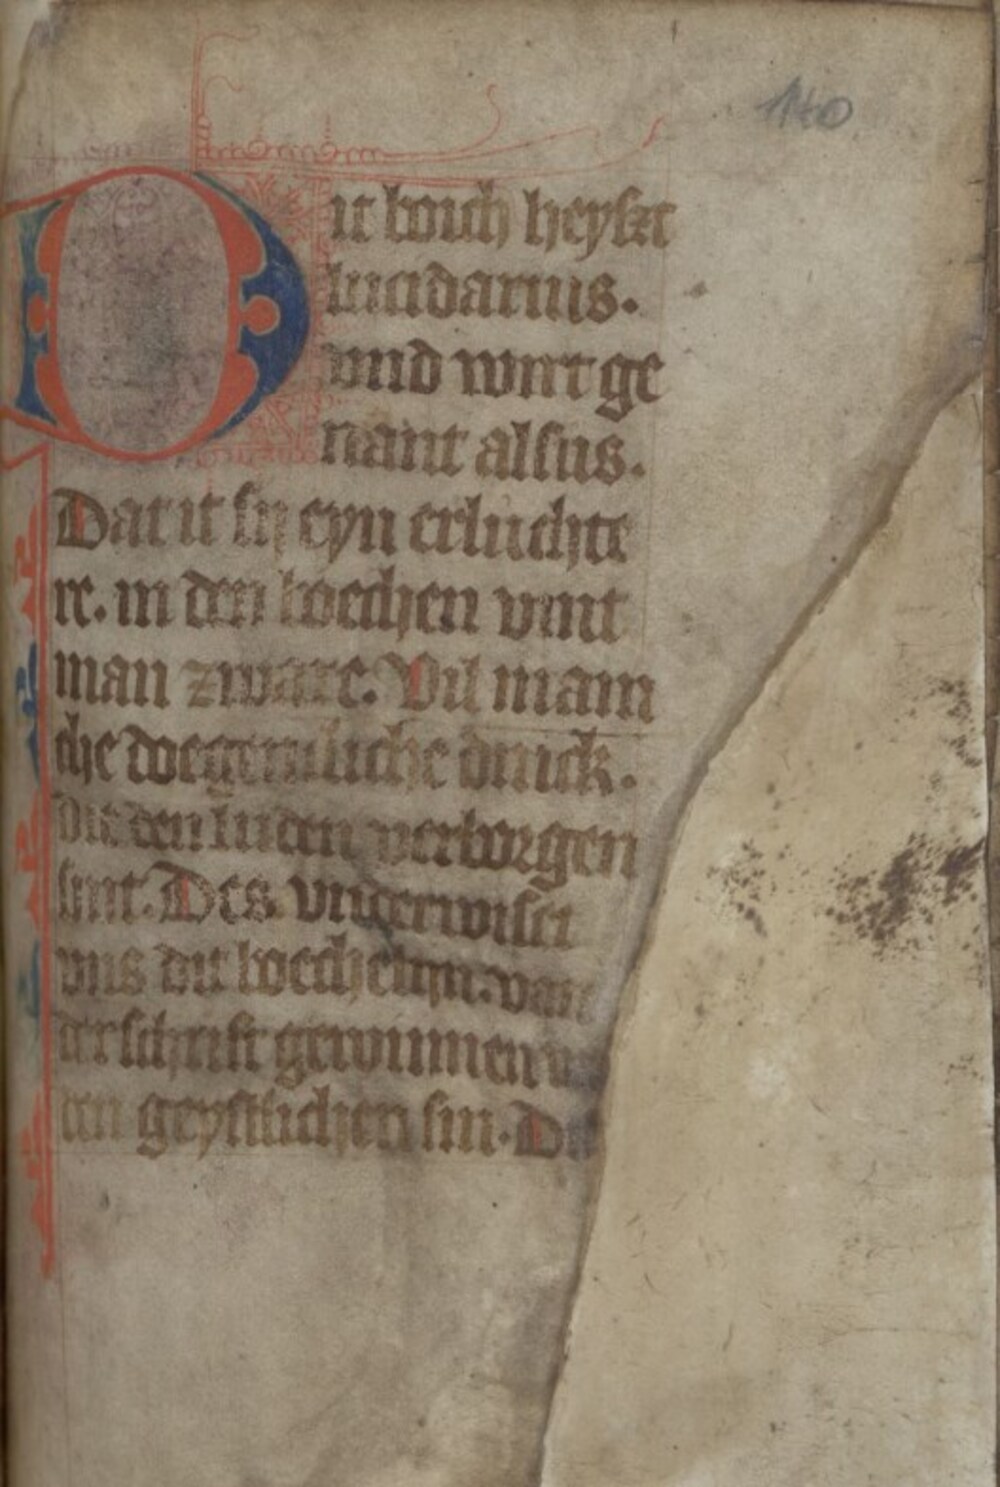 140
Ditboich heyszt
lucidarius.
vnd wirt ge
nant alsus.
Dat it sij eyn erluchte
re. in den boechen vint
man zware. Vil mani
che doegentliche druck.
Die den luden verborgen
sint. Des vnderwiset
vns dit boechelijn. van
der schrift gewunnen
den geystlichen sin. D